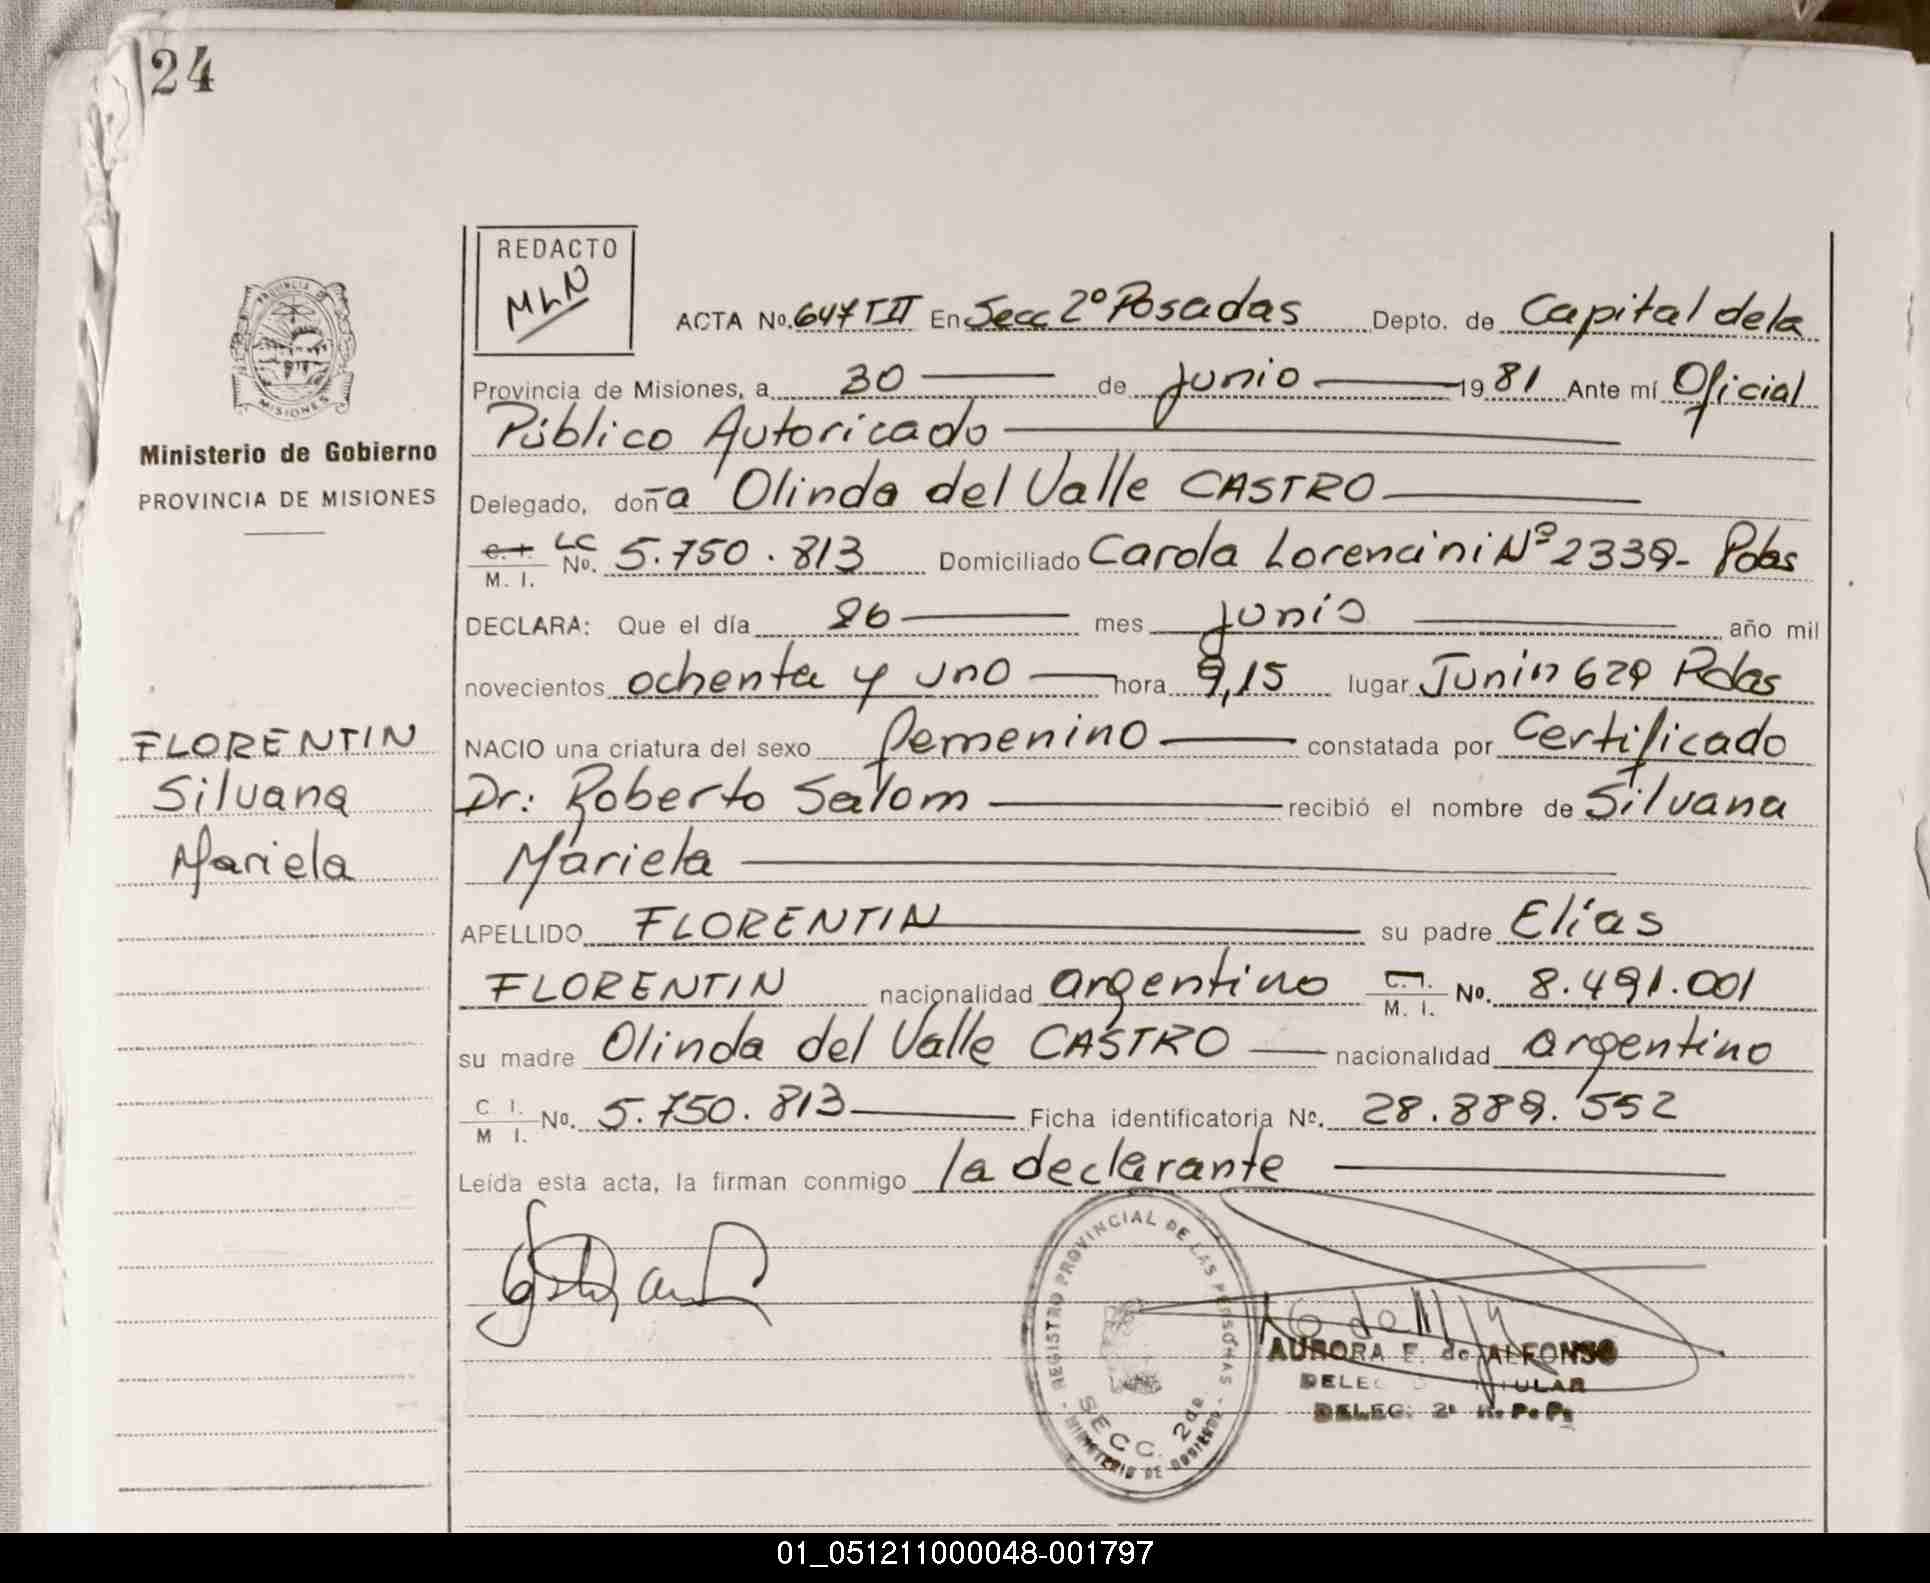 24
REDACTO
MLN
ACTA No. 647 TII En Secc 2º Posadas Depto. de Capital de la
Provincia de Misiones, a 30 de junio 1981 Ante mí Oficial
Público Autoricado
Ministerio de Gobierno
PROVINCIA DE MISIONES
Delegado, doña Olinda del Valle CASTRO
C. I. LC
M. I. No. 5.750.813 Domiciliado Carola Lorencini Nº 2339- Pdas
DECLARA: Que el día 26 mes junio año mil
novecientos ochenta y uno hora 9,15 lugar Junin 629 Pdas
FLORENTIN
Silvana
Mariela
NACIO una criatura del sexo femenino constatada por Certificado
Dr: Roberto Salom recibió el nombre de Silvana
Mariela
APELLIDO FLORENTIN su padre Elías
FLORENTIN nacionalidad argentino C.I. M. I. No. 8.491.001
su madre Olinda del Valle CASTRO nacionalidad argentino
C I. M I. No. 5.750.813 Ficha identificatoria No. 28.889.552
Leída esta acta, la firman conmigo la declarante
REGISTRO PROVINCIAL DE LAS PERSONAS
SECC. 2da.
MINISTERIO DE GOBIERNO
AURORA E. de ALFONSO
DELEG. 2ª R. P. P.
01_051211000048-001797